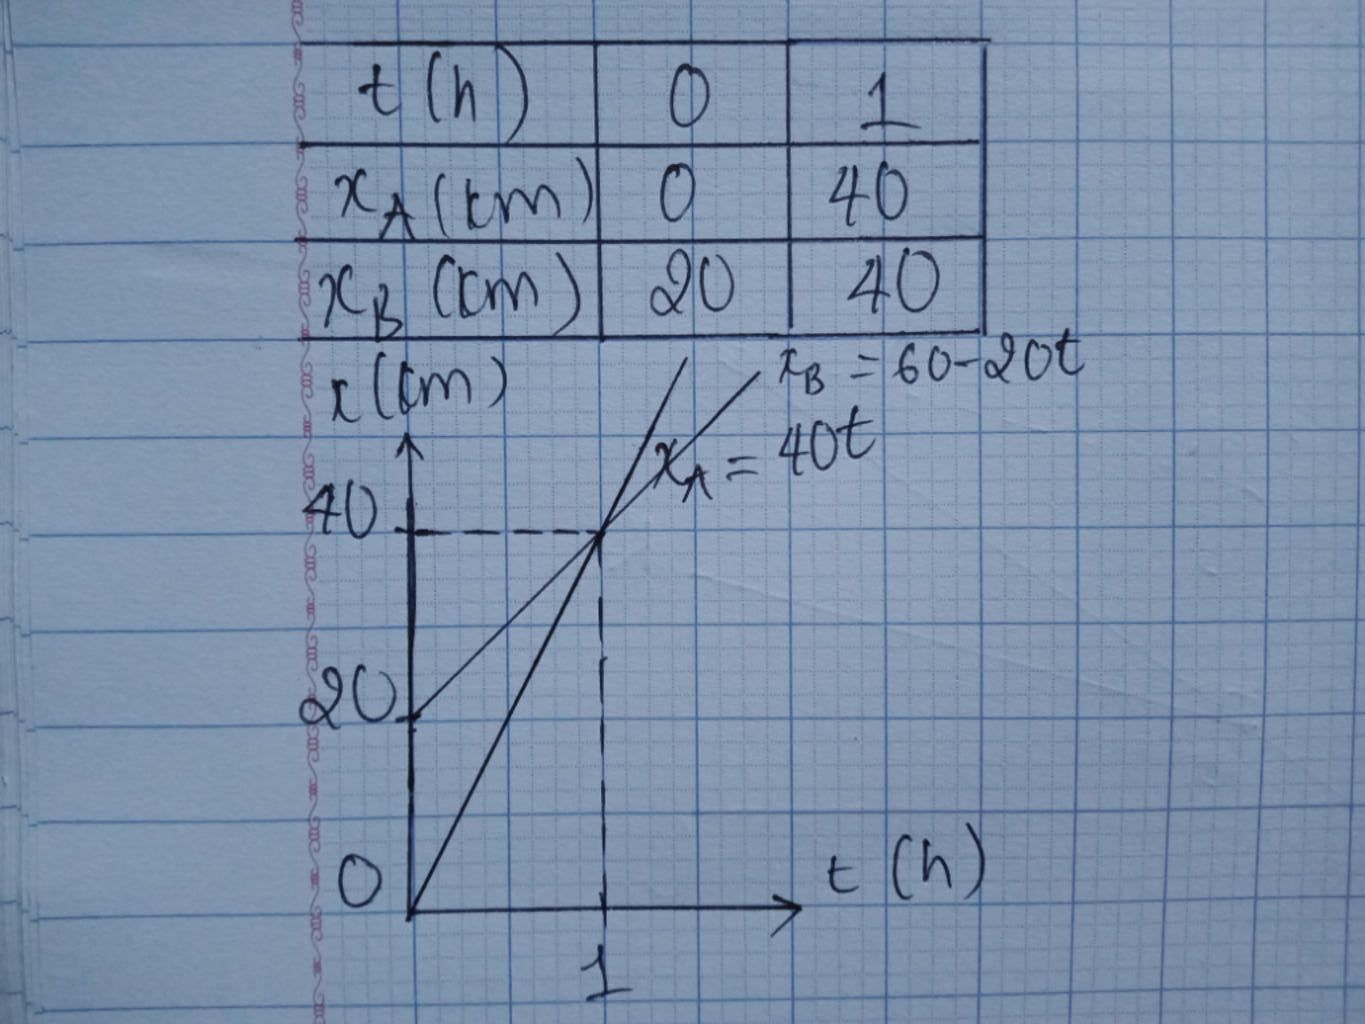 t (h) 0 1
xA (km) 0 40
xB (km) 20 40
x (km)
xB = 60-20t
xA = 40t
40
20
0
t (h)
1